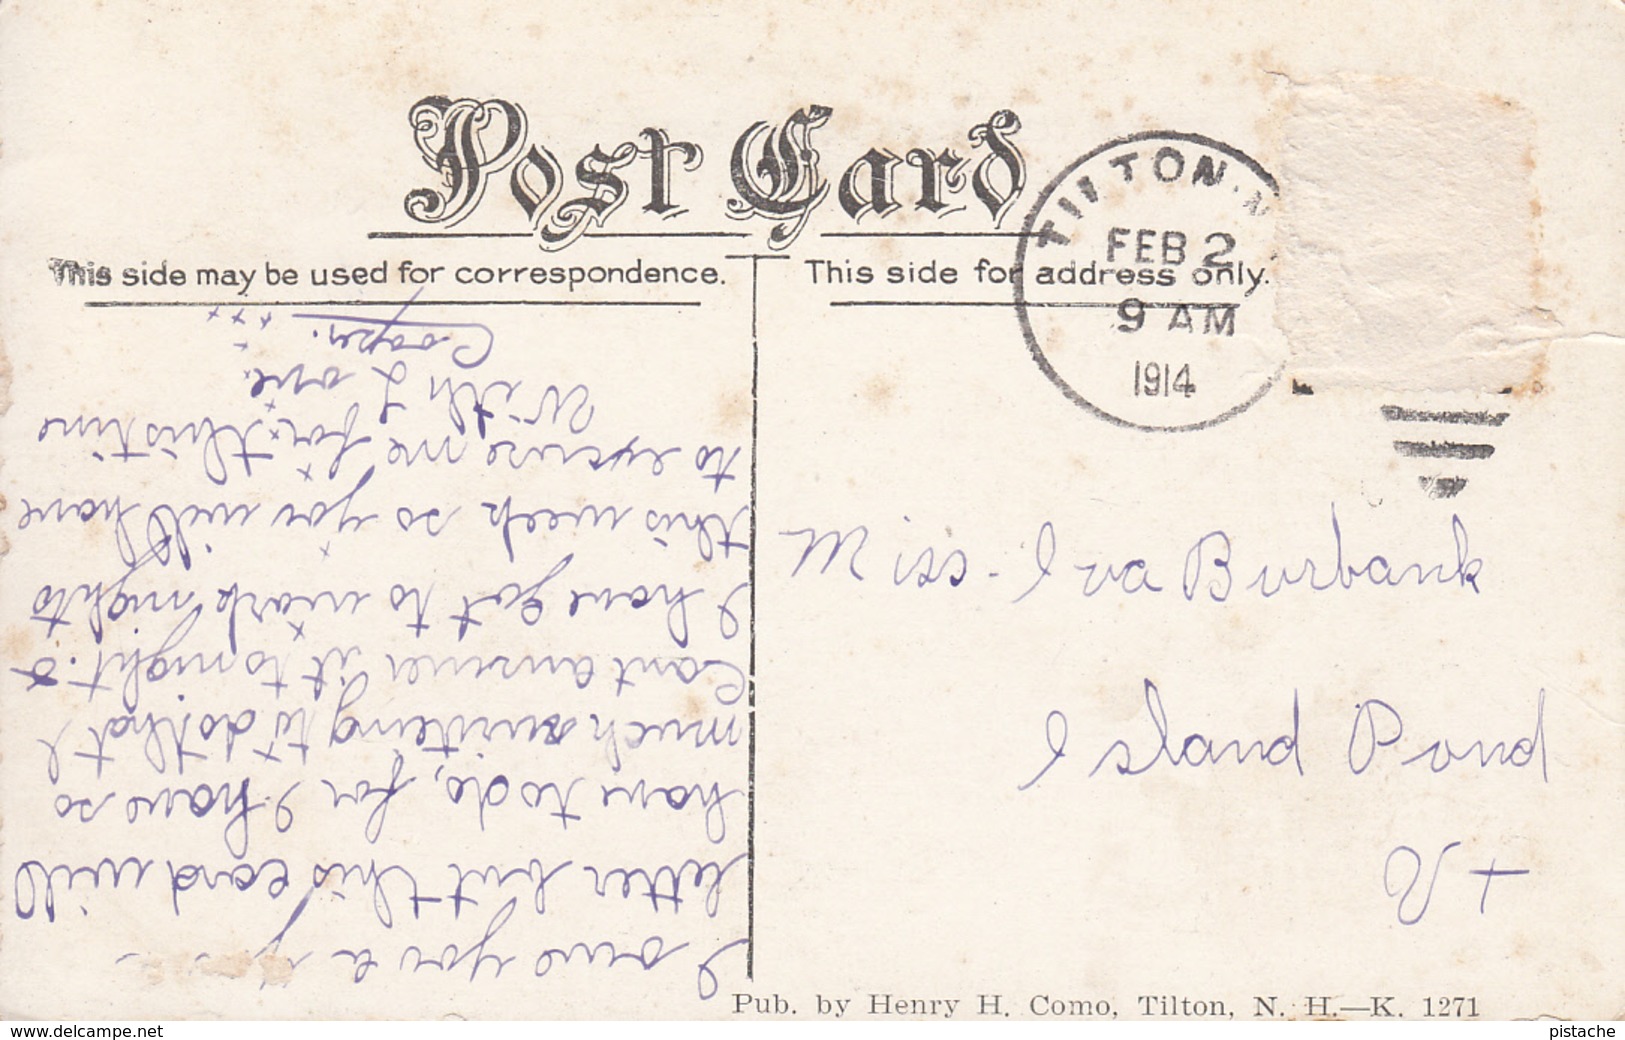 Post Card
This side may be used for correspondence.
This side for address only.
TILTON, N
FEB 2
9 AM
1914
Miss. Iva Burbank
Island Pond
Vt
I owe you a
letter but this card will
have to do, for I have so
much writeing to do that I
Cant answer it to night. &
I have got to work nights
this week so you will have
to excuse me for this time
With Love.
Cooper.
x x x x x x
Pub. by Henry H. Como, Tilton, N. H.—K. 1271
www.delcampe.net
pistache